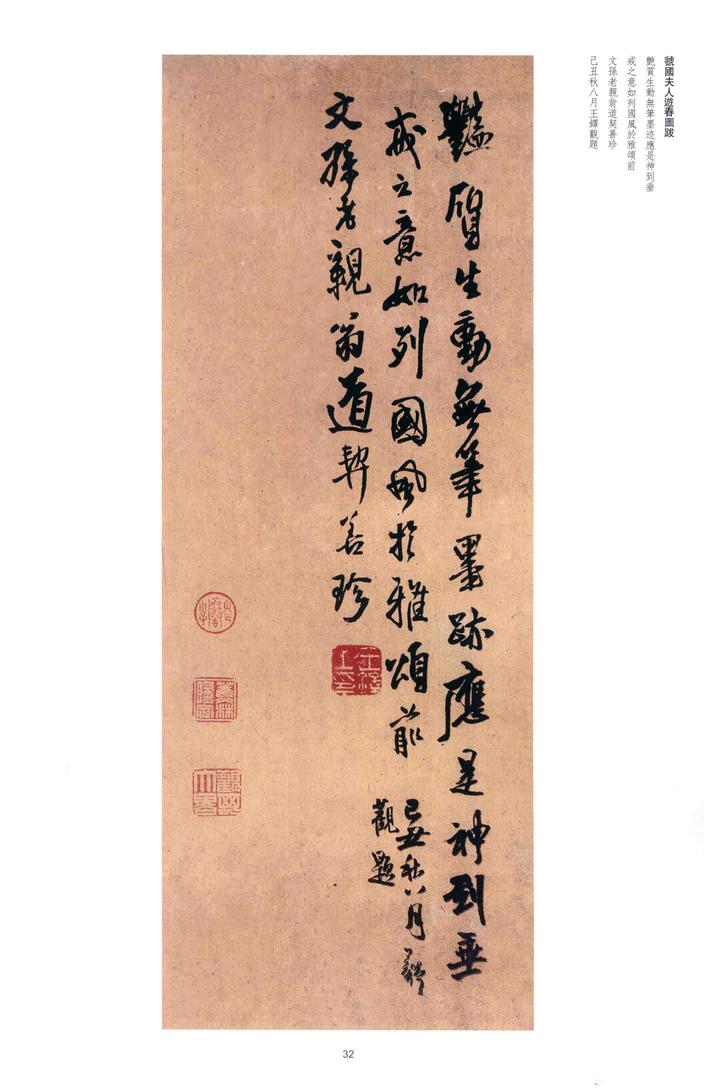 虢國夫人遊春圖跋
艷質生動無筆墨迹應是神到垂
戒之意如列國風於雅頌前
文孫老親翁道契善珍
己丑秋八月王鐸觀題
豔質生動無筆墨跡應是神到垂
戒之意如列國風於雅頌前
己丑秋八月鐸
觀題
文孫老親翁道契善珍
32